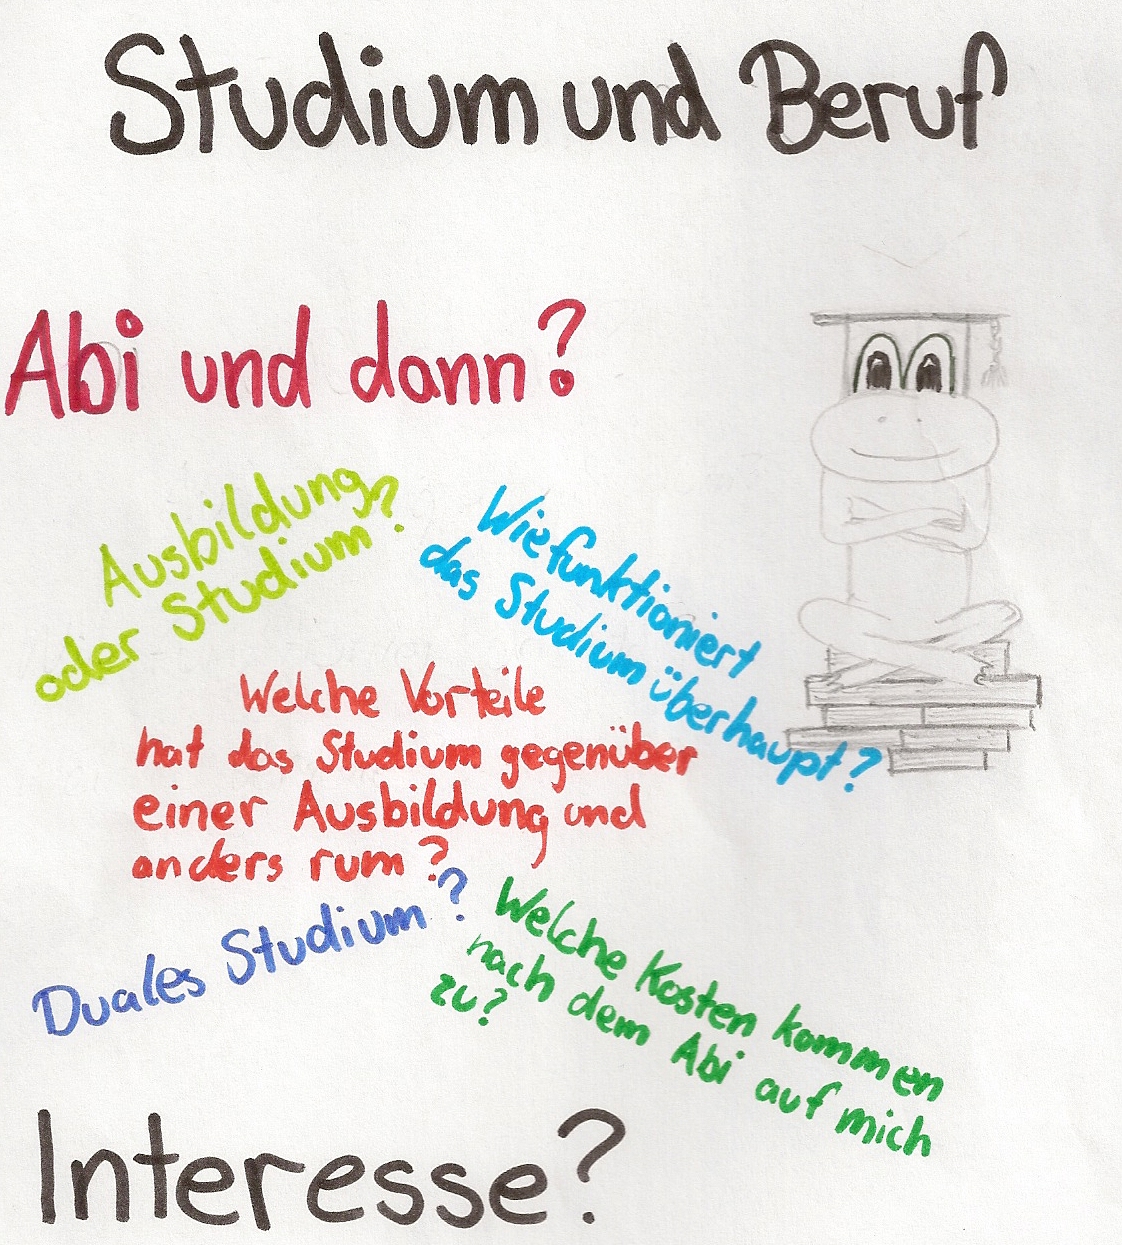 Studium und Beruf
Abi und dann?
Ausbildung
oder Studium?
Wie funktioniert
das Studium überhaupt?
Welche Vorteile
hat das Studium gegenüber
einer Ausbildung und
anders rum?
Duales Studium?
Welche Kosten kommen
nach dem Abi auf mich
zu?
Interesse?